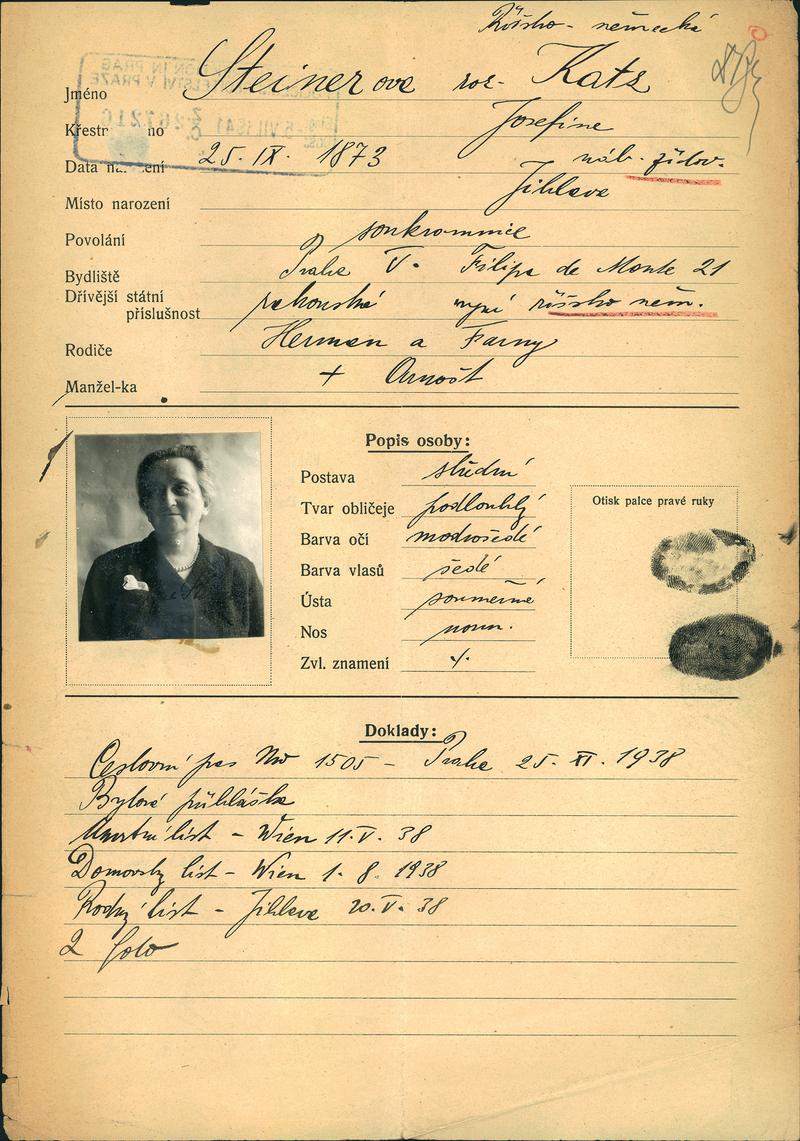 Říšsko - německá
Jméno Steinerova roz. Katz
Křestní jméno Josefine
Data narození 25. IX. 1873 náb. židov.
Místo narození Jihlava
Povolání soukromnice
Bydliště Praha V. Filipa de Monte 21
Dřívější státní
příslušnost rakouská nyní říšsko něm.
Rodiče Herman a Fanny
Manžel-ka + Arnošt
Popis osoby:
Postava střední
Tvar obličeje podlouhlý
Barva očí modrošedé
Barva vlasů šedé
Ústa souměrné
Nos norm.
Zvl. znamení
Otisk palce pravé ruky
Doklady:
Cestovní pas No 1505 - Praha 25. XI. 1938
Bytová přihláška
Úmrtní list - Wien 11. V. 38
Domovský list - Wien 1. 8. 1938
Rodný list - Jihlava 20. V. 38
2 foto